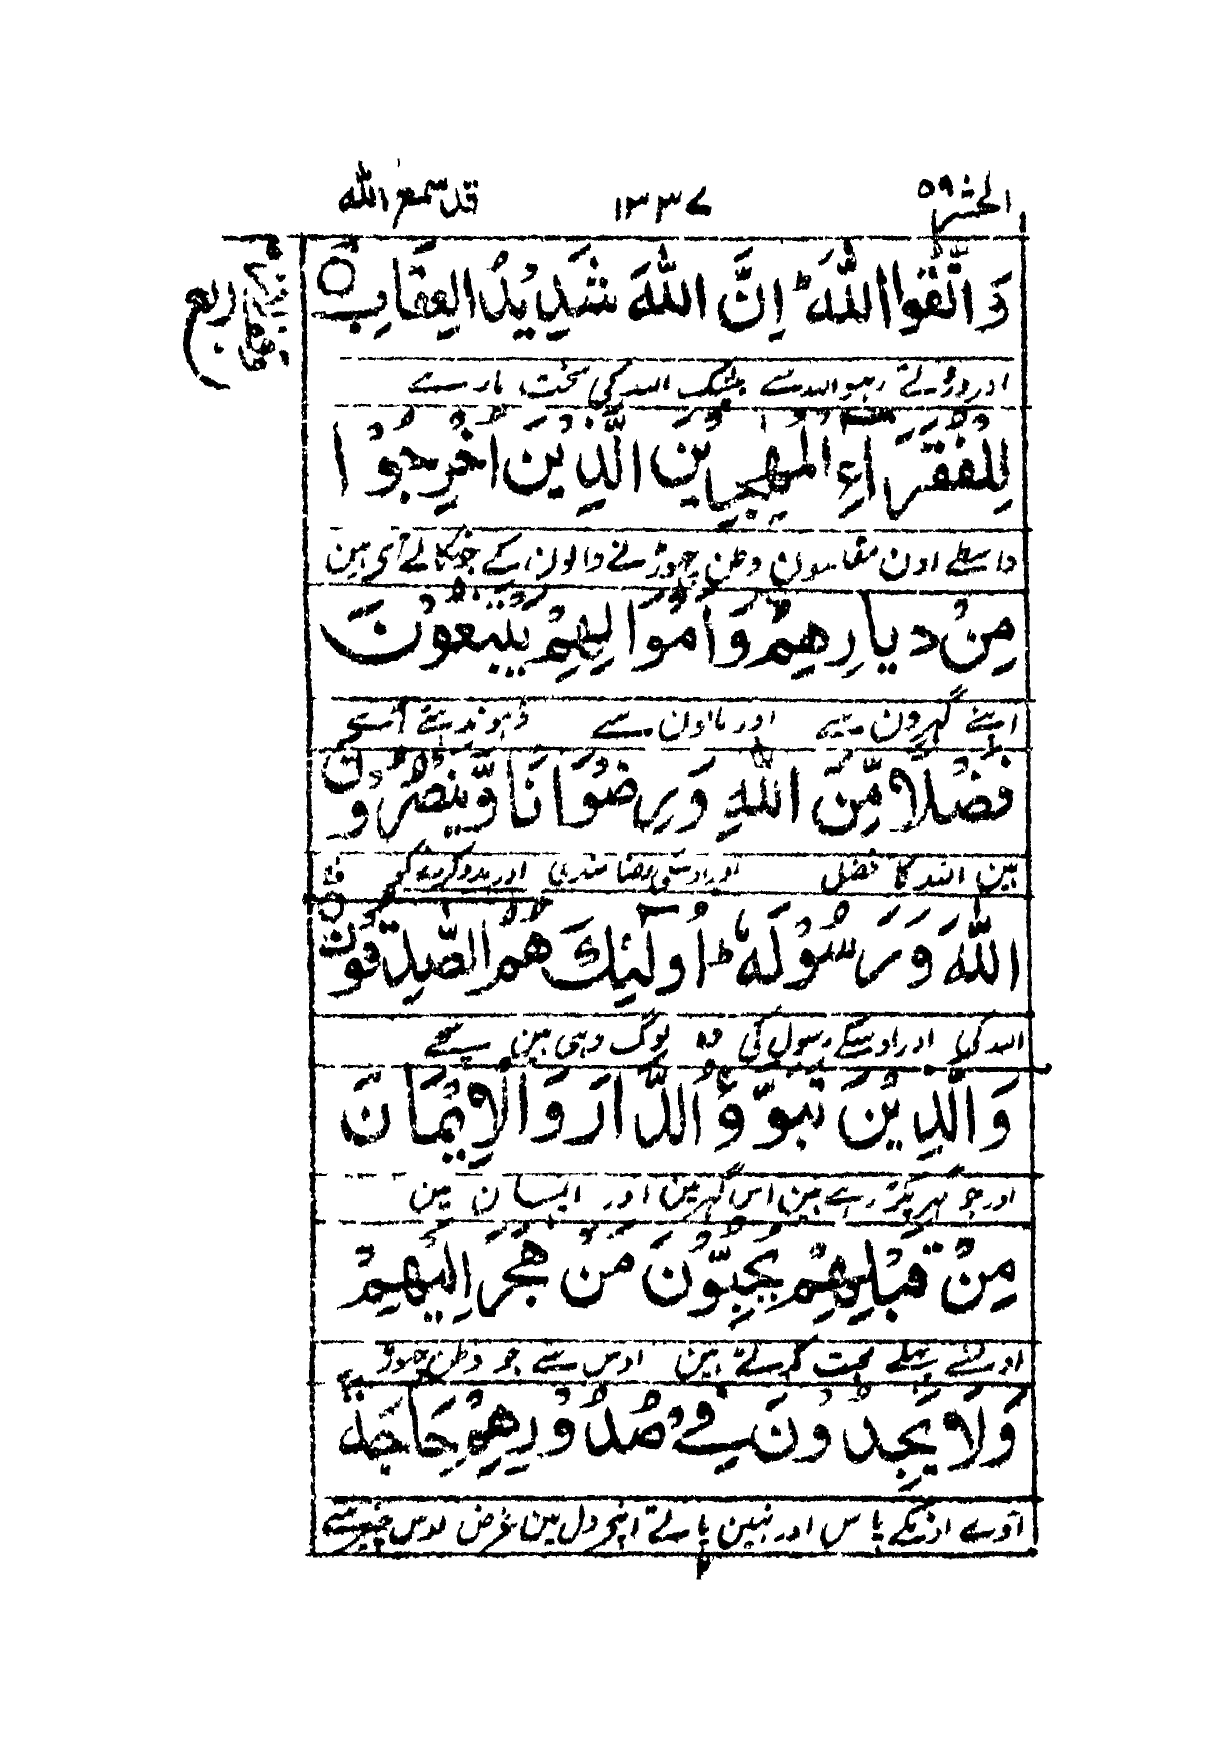 الحشر ٥٩ ١٣٣٧ قد سمع الله
وَاتَّقُوا اللهَ ؕ اِنَّ اللهَ شَدِیْدُ الْعِقَابِ ○
ربع
اور ڈرتے رہو اللہ سے بیشک اللہ کی سخت مار ہے
لِلْفُقَرَآءِ الْمُهٰجِرِیْنَ الَّذِیْنَ اُخْرِجُوْا
واسطے اون مفلسون وطن چھوڑنے والون کے جو نکالے آئے ہین
مِنْ دِیَارِهِمْ وَاَمْوَالِهِمْ یَبْتَغُوْنَ
اپنے گھرون سے اور مالون سے ڈہونڈہتے آئے
فَضْلًا مِّنَ اللهِ وَرِضْوَانًا وَّیَنْصُرُوْنَ
ہین اللہ کا فضل اور اوسکی رضا مندی اور مدد کرنے کو
اللهَ وَرَسُوْلَهٗ ؕ اُولٰٓئِكَ هُمُ الصّٰدِقُوْنَ ○
اللہ کی اور اوسکے رسول کی وہ لوگ وہی ہین سچے
وَالَّذِیْنَ تَبَوَّؤُ الدَّارَ وَالْاِیْمَانَ
اور جو گھر پکڑ رہے ہین اس گھر مین اور ایمان مین
مِنْ قَبْلِهِمْ یُحِبُّوْنَ مَنْ هَجَرَ اِلَیْهِمْ
اون سے پہلے محبت کرتے ہین اوس سے جو وطن چھوڑ
وَلَا یَجِدُوْنَ فِیْ صُدُوْرِهِمْ حَاجَةً
آوے اونکے پاس اور نہین پاتے اپنے دل مین غرض اوس چیز سے